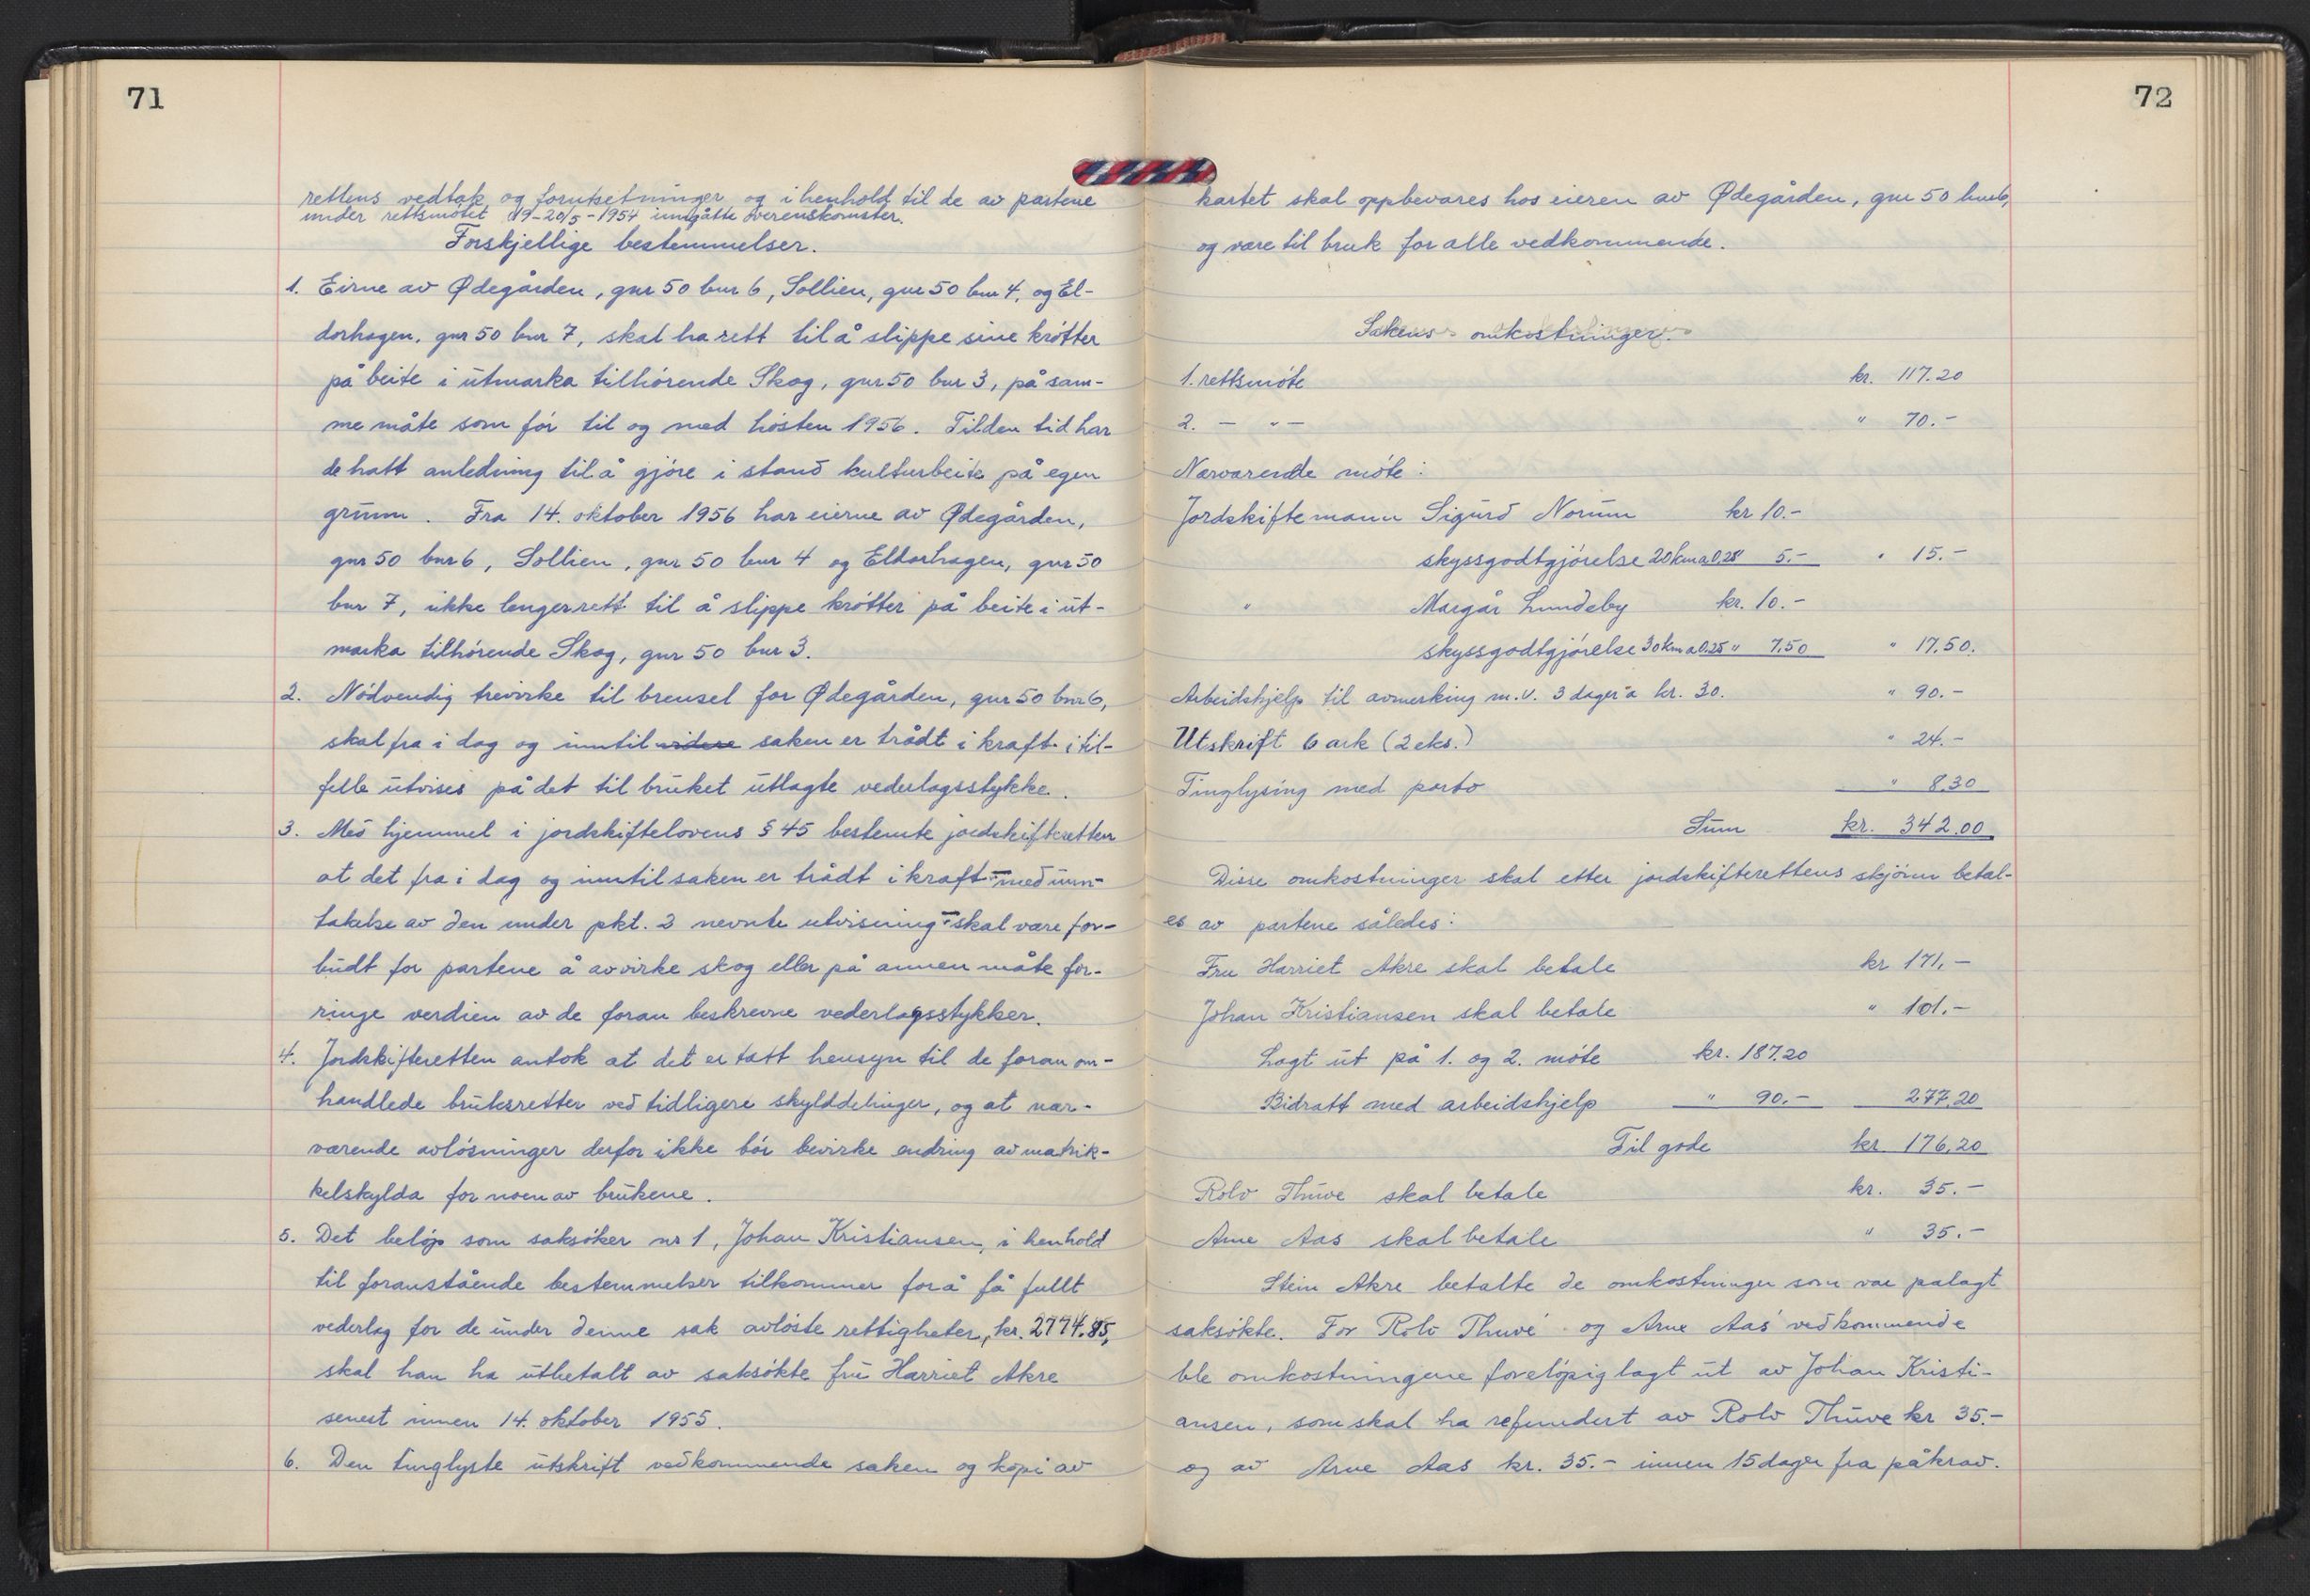 71
rettens vedtak og forutsetninger og i henhold til de av partene
under rettsmøtet 19-20/5-1954 inngåtte overenskomster.
Forskjellige bestemmelser.
1. Eirne av Ødegården, gnr 50 bnr 6, Sollien, gnr 50 bnr 4, og El-
dorhagen, gnr 50 bnr 7, skal ha rett til å slippe sine krøtter
på beite i utmarka tilhørende Skog, gnr 50 bnr 3, på sam-
me måte som før til og med høsten 1956. Til den tid har
de hatt anledning til å gjøre i stand kulturbeite på egen
grunn. Fra 14. oktober 1956 har eierne av Ødegården,
gnr 50 bnr 6, Sollien, gnr 50 bnr 4 og Eldorhagen, gnr 50
bnr 7, ikke lenger rett til å slippe krøtter på beite i ut-
marka tilhørende Skog, gnr 50 bnr 3.
2. Nødvendig trevirke til brensel for Ødegården, gnr 50 bnr 6,
skal fra i dag og inntil videre saken er trådt i kraft i til-
felle utvises på det til bruket utlagte vederlagsstykke.
3. Med hjemmel i jordskiftelovens § 45 bestemte jordskifteretten
at det fra i dag og inntil saken er trådt i kraft - med unn-
takelse av den under pkt. 2 nevnte utvisning - skal være for-
budt for partene å avvirke skog eller på annen måte for-
ringe verdien av de foran beskrevne vederlagsstykker.
4. Jordskifteretten antok at det er tatt hensyn til de foran om-
handlede bruksretter ved tidligere skylddelinger, og at nær-
værende avløsninger derfor ikke bør bevirke endring av matrik-
kelskylda for noen av brukene.
5. Det beløp som saksøker nr 1, Johan Kristiansen, i henhold
til foranstående bestemmelser tilkommer for å få fullt
vederlag for de under denne sak avløste rettigheter, kr. 2774.85,
skal han ha utbetalt av saksøkte fru Harriet Akre
senest innen 14. oktober 1955.
6. Den tinglyste utskrift vedkommende saken og kopi av
72
kartet skal oppbevares hos eieren av Ødegården, gnr 50 bnr 6,
og være til bruk for alle vedkommende.
Sakens omkostninger.
1. rettsmøte kr. 117.20
2. — " — " 70.-
Nærværende møte:
Jordskiftemann Sigurd Norum kr 10.-
skyssgodtgjørelse 20 km a 0.25 " 5.- " 15.-
" Margår Lundeby kr. 10.-
skyssgodtgjørelse 30 km a 0.25 " 7.50 " 17.50.
Arbeidshjelp til avmerking m.v. 3 dager a kr. 30. " 90.-
Utskrift 6 ark (2 eks.) " 24.-
Tinglysing med porto " 8.30
Sum kr. 342.00
Disse omkostninger skal etter jordskifterettens skjønn betal-
es av partene således:
Fru Harriet Akre skal betale kr 171,-
Johan Kristiansen skal betale " 101.-
Lagt ut på 1. og 2. møte kr. 187.20
Bidratt med arbeidshjelp " 90.- 277,20
Til gode kr. 176,20
Rolv Thuve skal betale kr. 35.-
Arne Aas skal betale " 35.-
Stein Akre betalte de omkostninger som var pålagt
saksøkte. For Rolv Thuve og Arne Aas vedkommende
ble omkostningene foreløpig lagt ut av Johan Kristi-
ansen, som skal ha refundert av Rolv Thuve kr 35.-
og av Arne Aas kr. 35.- innen 15 dager fra påkrav.